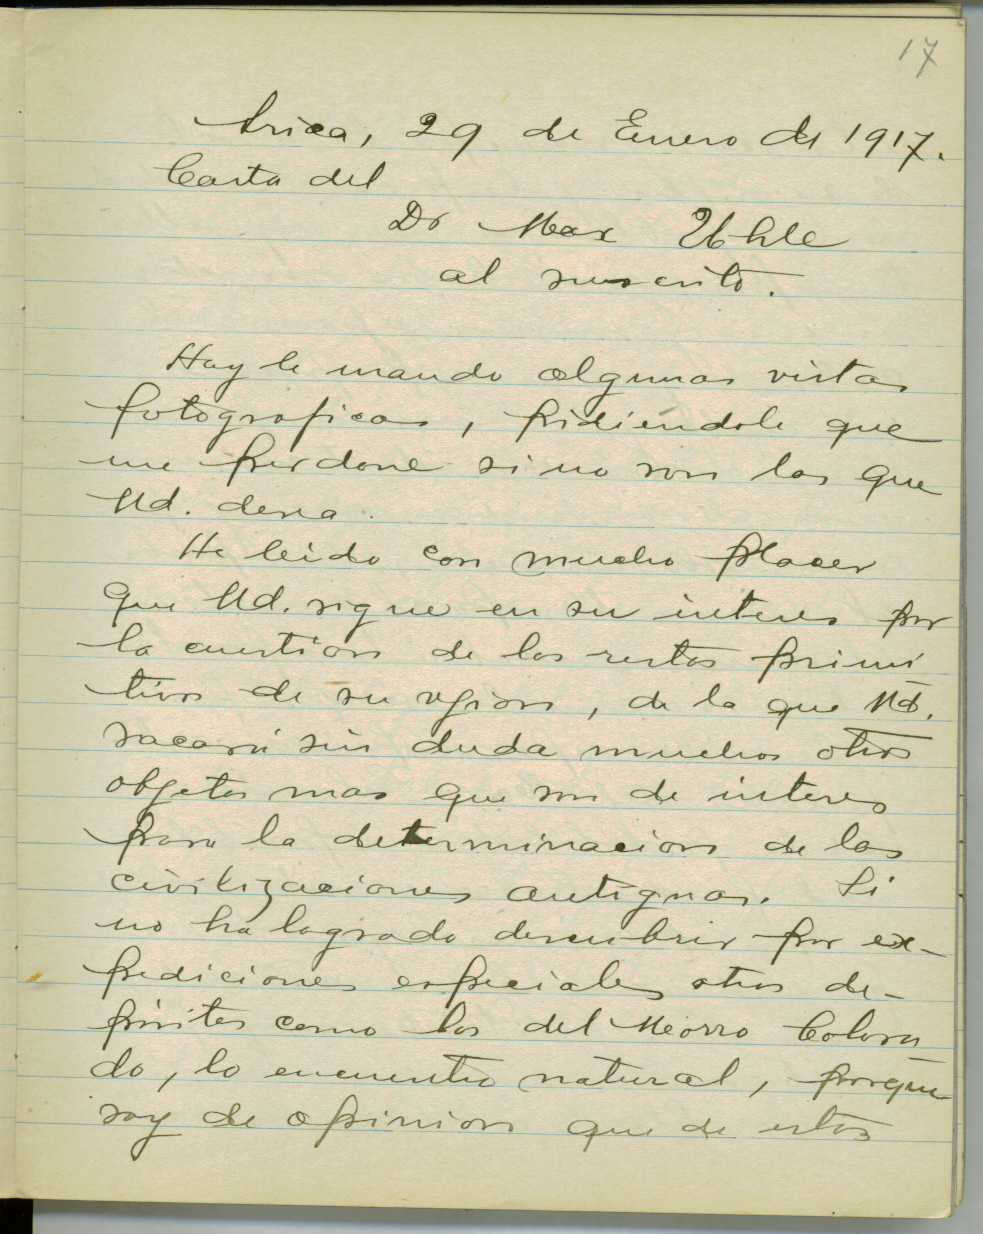 17
Arica, 29 de Enero de 1917.
Carta del
Dr Max Uhle
al suscrito.
Hoy le mando algunas vistas
fotograficas, pidiéndole que
me perdone si no son las que
Ud. desea.
He leido con mucho placer
que Ud. sigue en su interes por
la cuestion de los restos primi
tivos de su region, de la que Ud.
sacará sin duda muchos otros
objetos mas que son de interes
para la determinacion de las
civilizaciones antiguas. Si
no ha logrado descubrir por ex-
pediciones especiales otros de-
pósitos como los del Morro Colora
do, lo encuentro natural, porque
soy de opinion que de estos